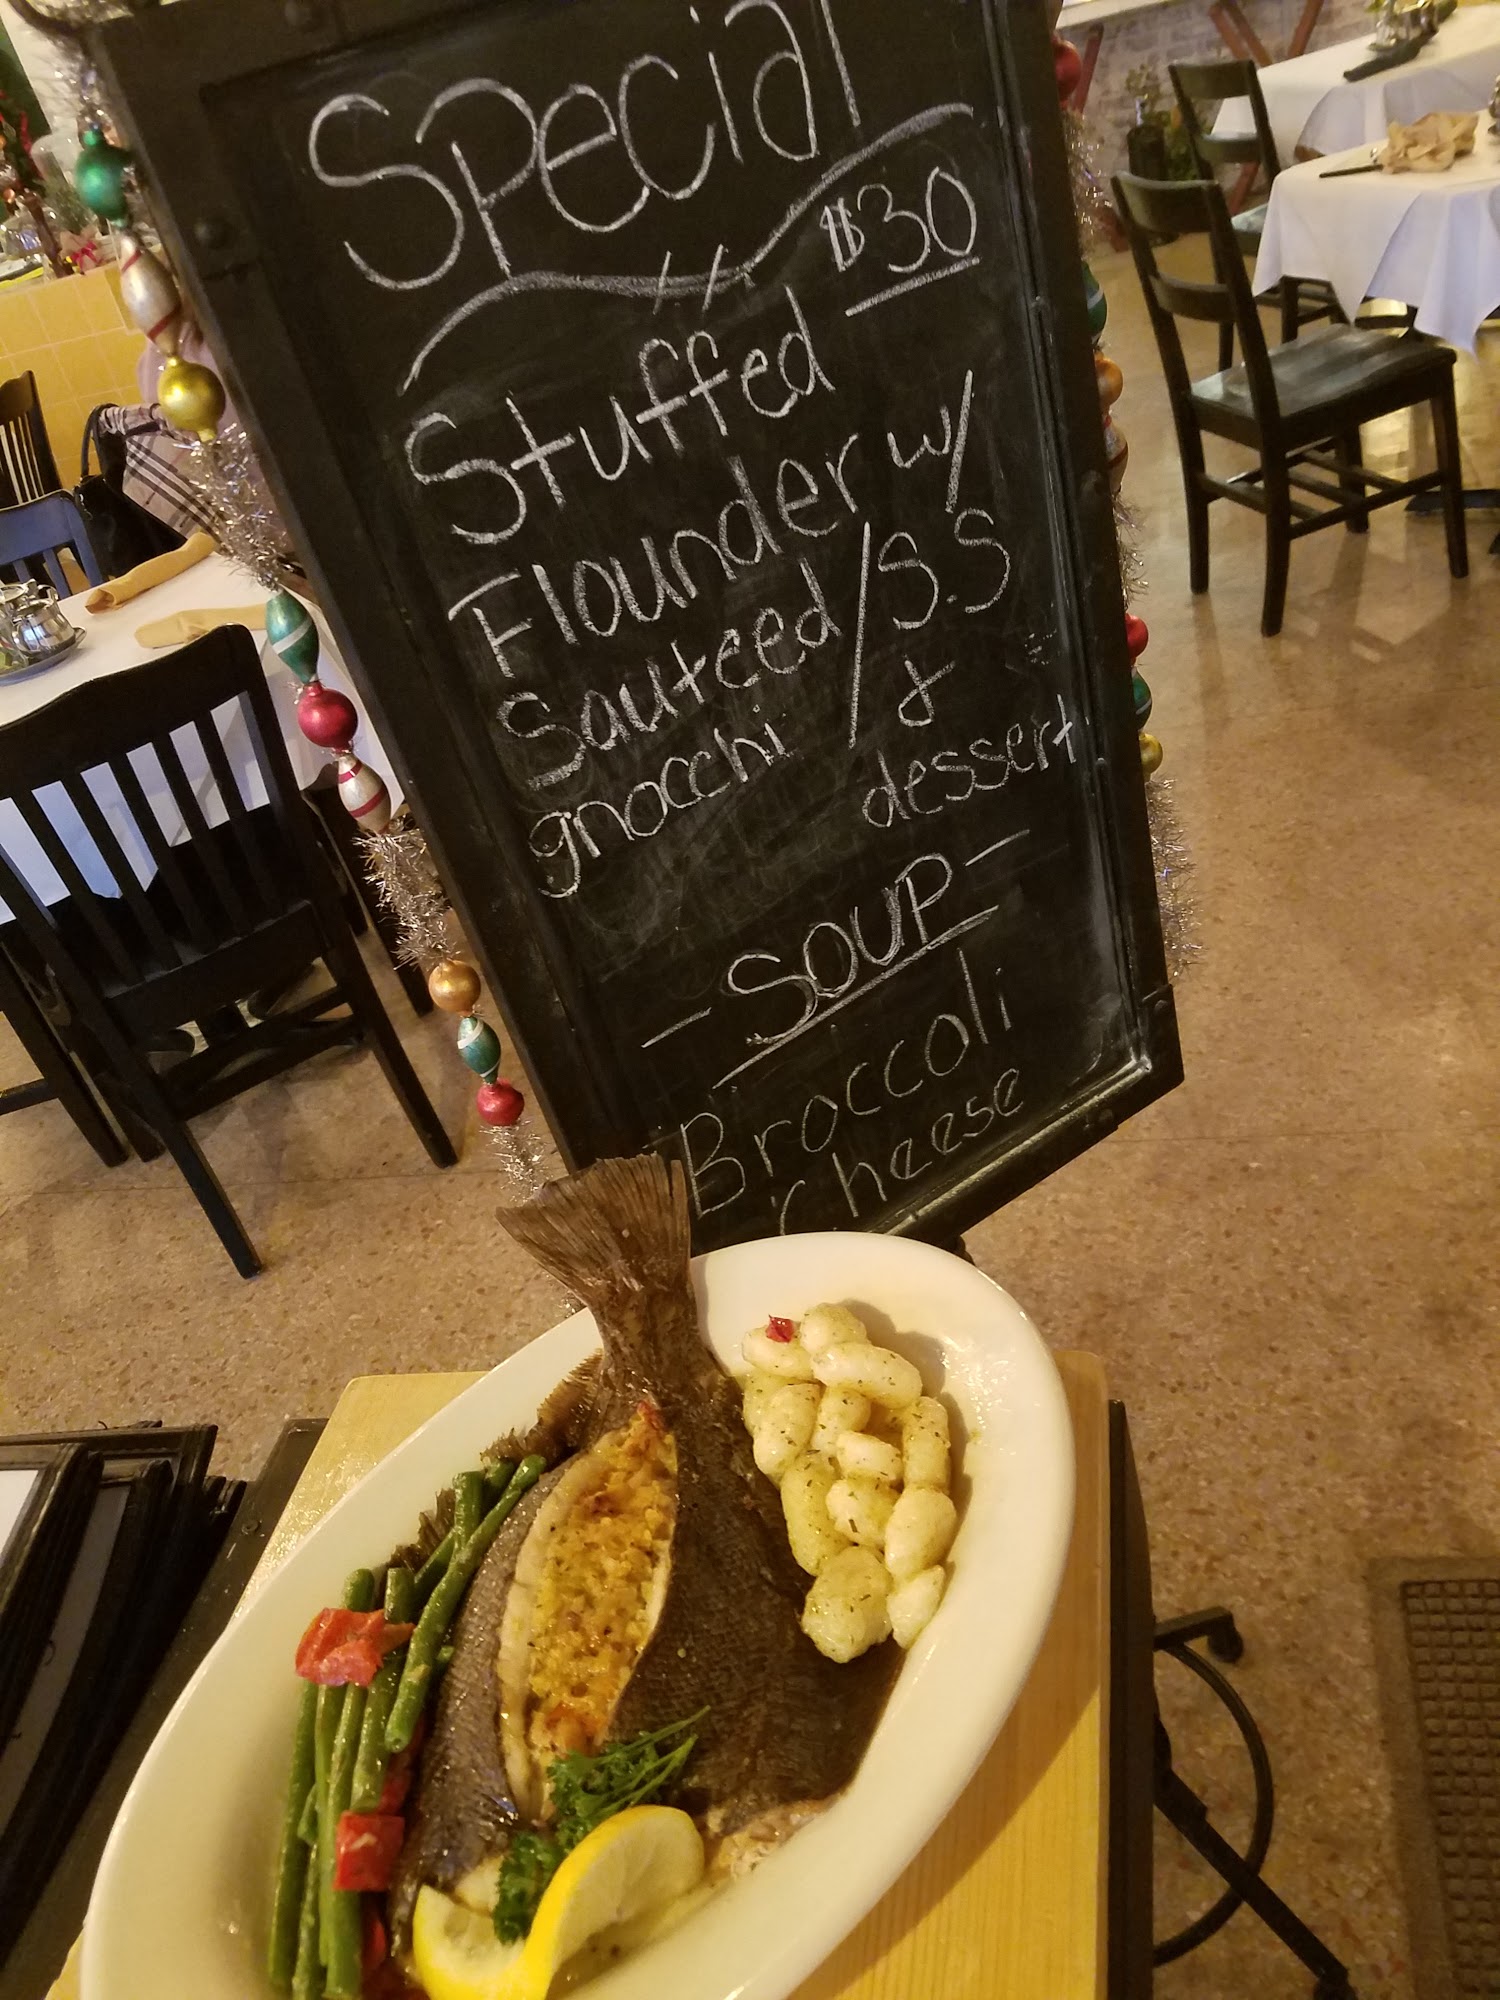 Special
$30
Stuffed
Flounder w/
Sauteed / S.S
gnocchi &
dessert
- SOUP -
Broccoli
Cheese